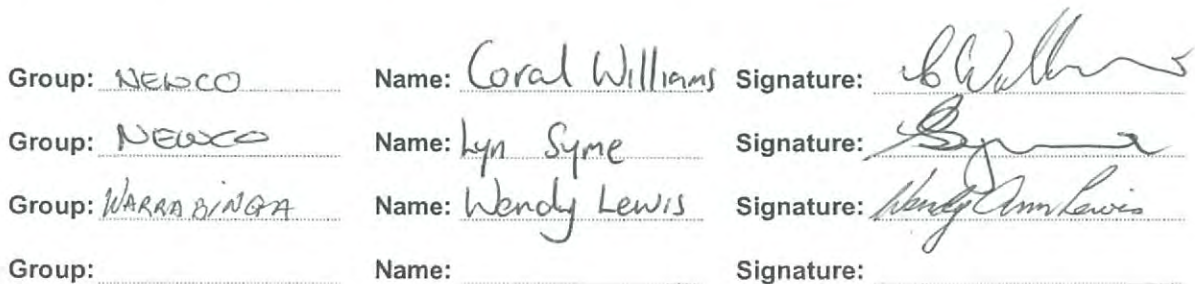 Group: NEWCO Name: Coral Williams Signature: C Williams
Group: NEWCO Name: Lyn Syme Signature: Syme
Group: WARRABINGA Name: Wendy Lewis Signature: Wendy Ann Lewis
Group: Name: Signature: